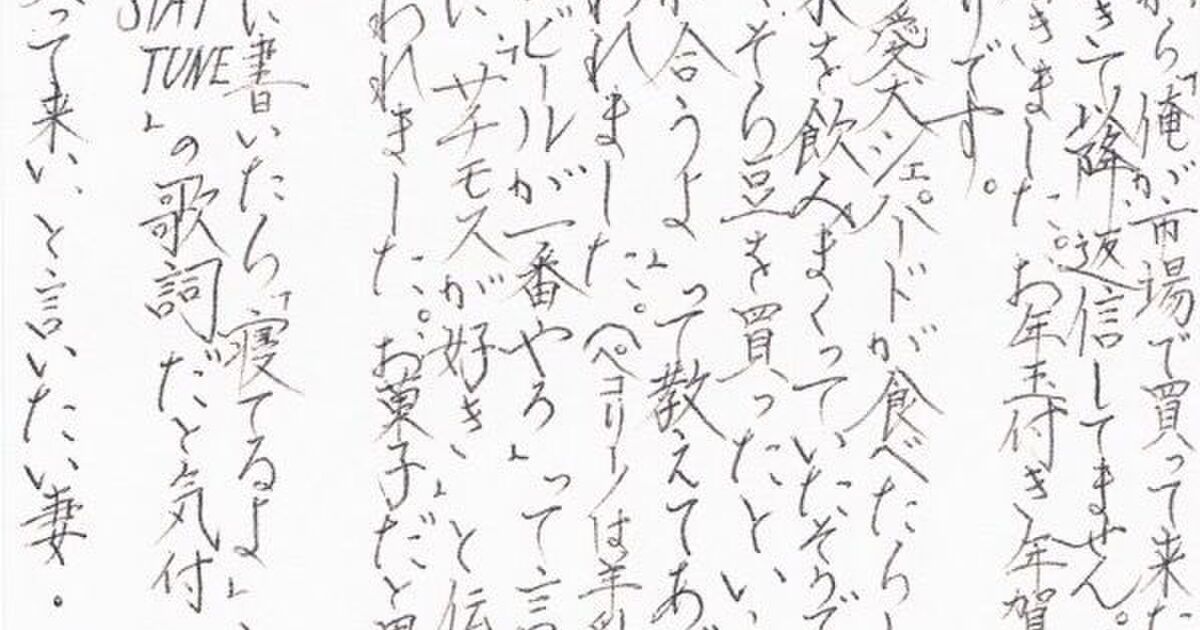 から「俺が市場で買って来た
きて以降、返信してません。
きいました。お年玉付き年賀
りです。
愛犬シェパードが食べたらし
水を飲みまくっていたそうで
そら豆を買ったとい
合うよ」って教えてあ
われました。(ペコリーノは羊乳
ビールが一番やろ」って言
い、サチモスが好き」と伝
われました。お菓子だと思
に書いたら「寝てるよ」
STAY TUNE」の歌詞だと気付
って来い、と言いたい妻・